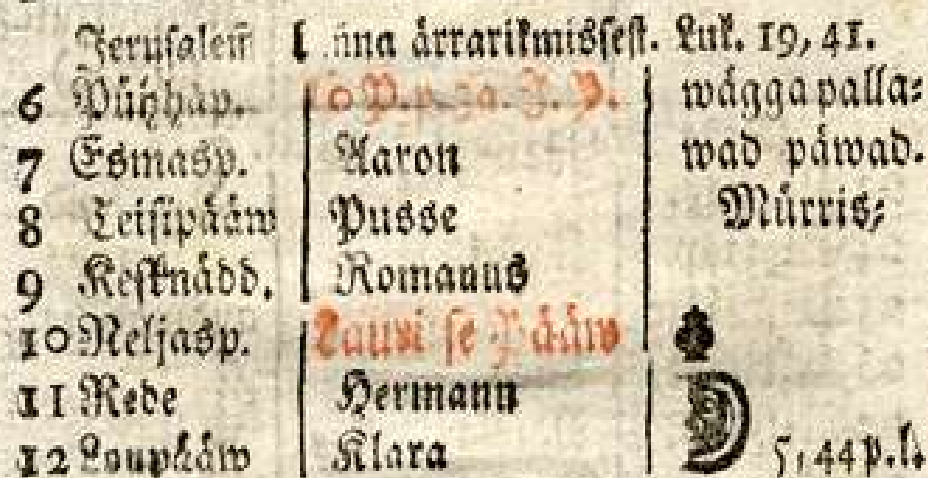 Jerusalem̃ linna ärrarikmissest. Luk. 19, 41.
6 Pühhap. 10 P. p. 3a. J. P. wägga palla⸗
7 Esmasp. Aaron wad päwad.
8 Teisipääw Pusse Mürris⸗
9 Kesknädd. Romanus
10 Neljasp. Lauri se Pääw
11 Rede Hermann
12 Loupääw Klara 5, 44 p. l.